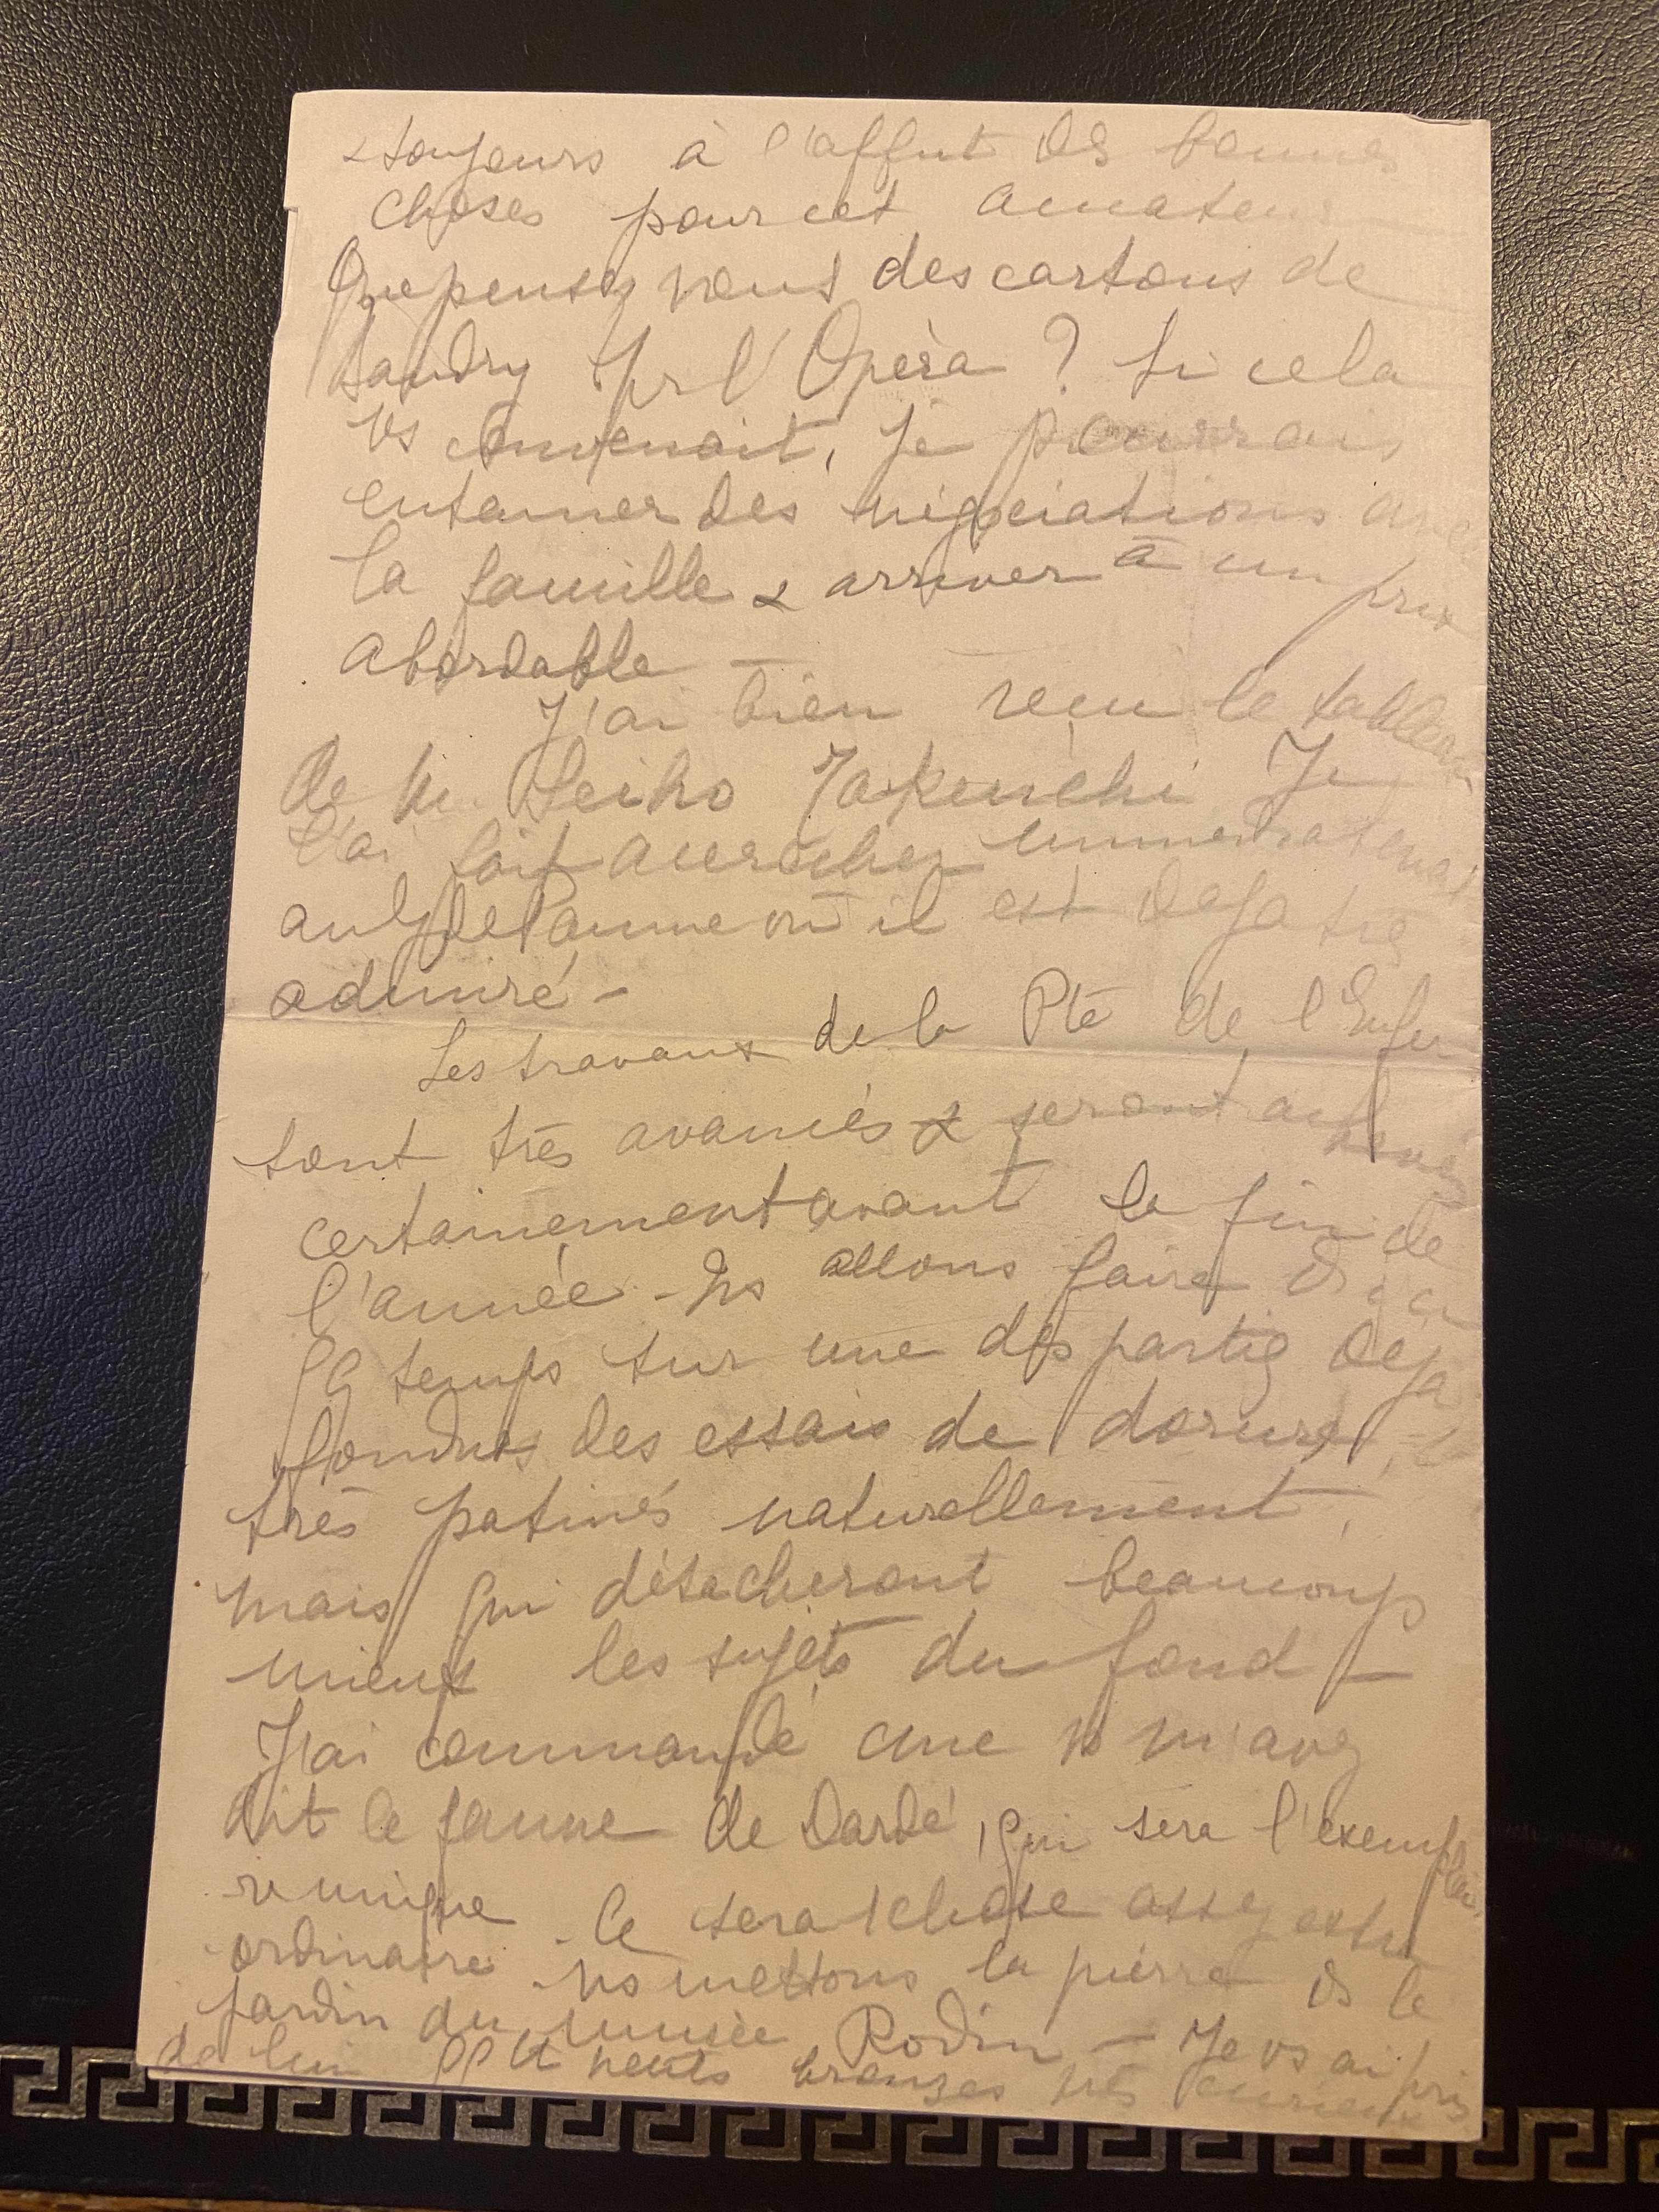 toujours à l'affut de bonnes
choses pour cet amateur
Que pensez vous des cartons de
Baudry pr l'Opéra ? Si cela
vs convenait, je pourrais
entamer des négociations avec
la famille & arriver à un prix
abordable —
J'ai bien reçu le tableau
de M. Seiho Takeuchi Je
l'ai fait accrocher immédiatement
au J de Paume où il est déjà très
admiré —
Les travaux de la Pte de l'Enfer
sont très avancés & seront achevés
certainement avant la fin de
l'année - Ns allons faire ds
qq temps sur une des parties déjà
fondues des essais de dorure,
très patinés naturellement,
mais qui détacheront beaucoup
mieux les sujets du fond —
J'ai commandé cme vs m'avez
dit le faune de Dardé, qui sera l'exemplai
re unique - Ce sera 1 chose assez extra
ordinaire - Ns mettons la pierre ds le
jardin du musée Rodin — Je vs ai pris
de lui petits bronzes très curieux